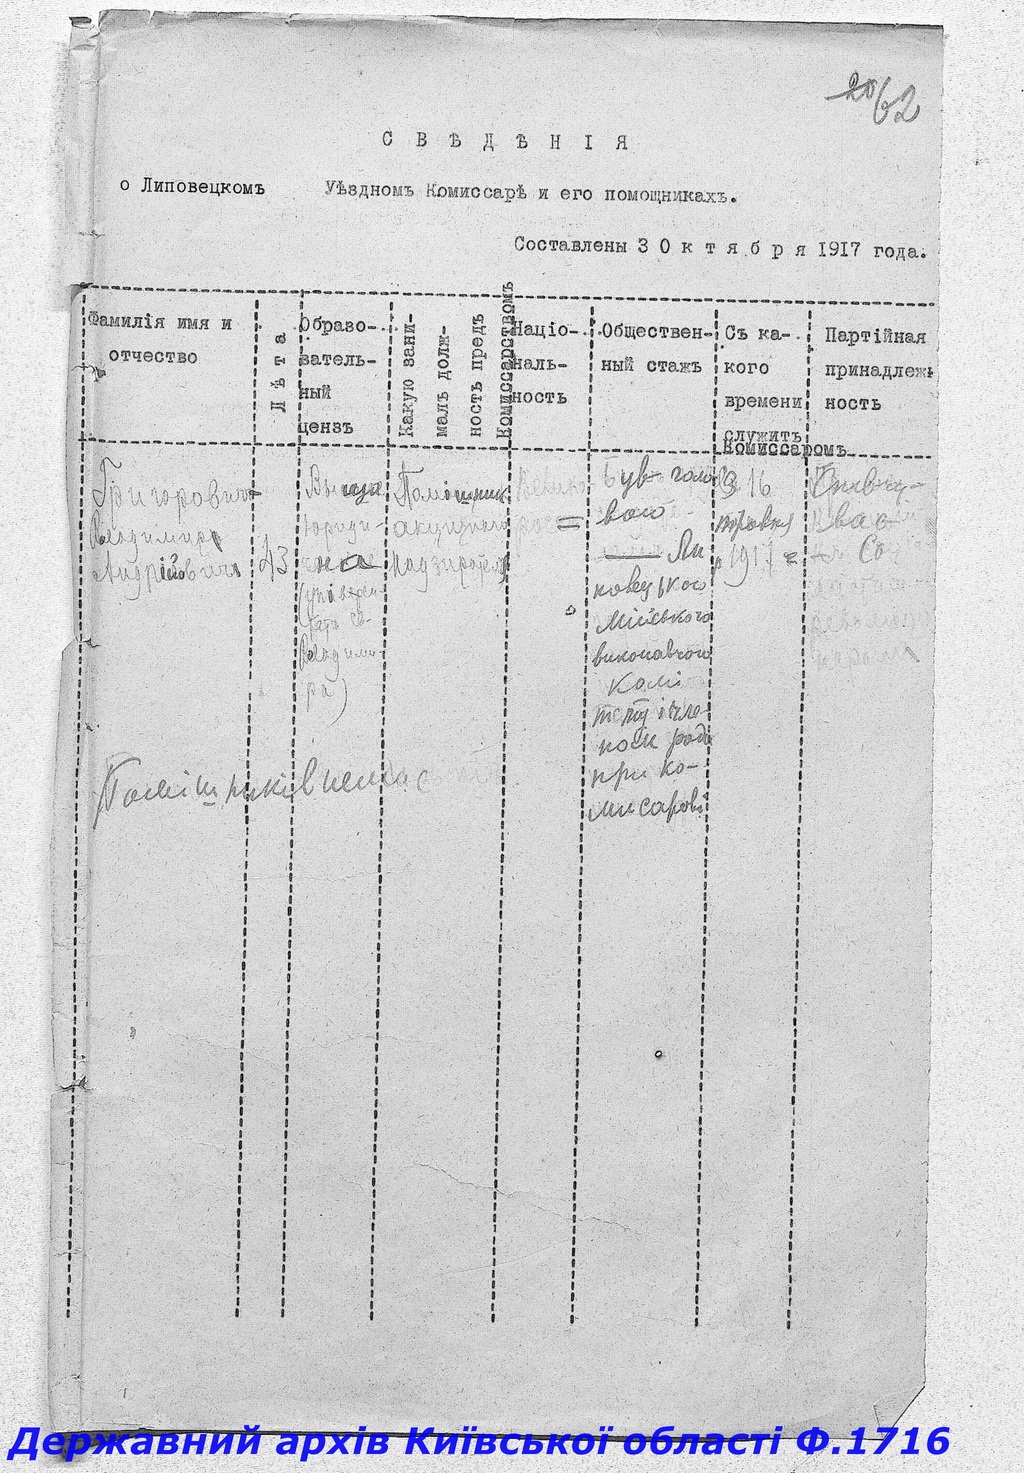 20 62
С В Ѣ Д Ѣ Н І Я
о Липовецкомъ Уѣздномъ Комиссарѣ и его помощникахъ.
Составлены 3 О к т я б р я 1917 года.
Фамилія имя и
отчество
Лѣта
Образо-
ватель-
ный
цензъ
Какую зани-
малъ долж-
ность предъ
Комиссарствомъ
Націо-
наль-
ность
Обществен-
ный стажъ
Съ ка-
кого
времени
служитъ
Комиссаромъ
Партійная
принадлеж-
ность
Григорович
Володимир
Андрійович
43
Вища
юриди-
чна
Володими-
ра)
Помішник
акцизного
надзирателя
Велико-
рос
був голо-
вою
Ли
повецького
Мійського
виконавчого
Комі
тету і чле-
ном ради
при ко-
мисарові
З 16
1917
Співчу-
ває
Со
Помішників немає
Державний архів Київської області Ф.1716